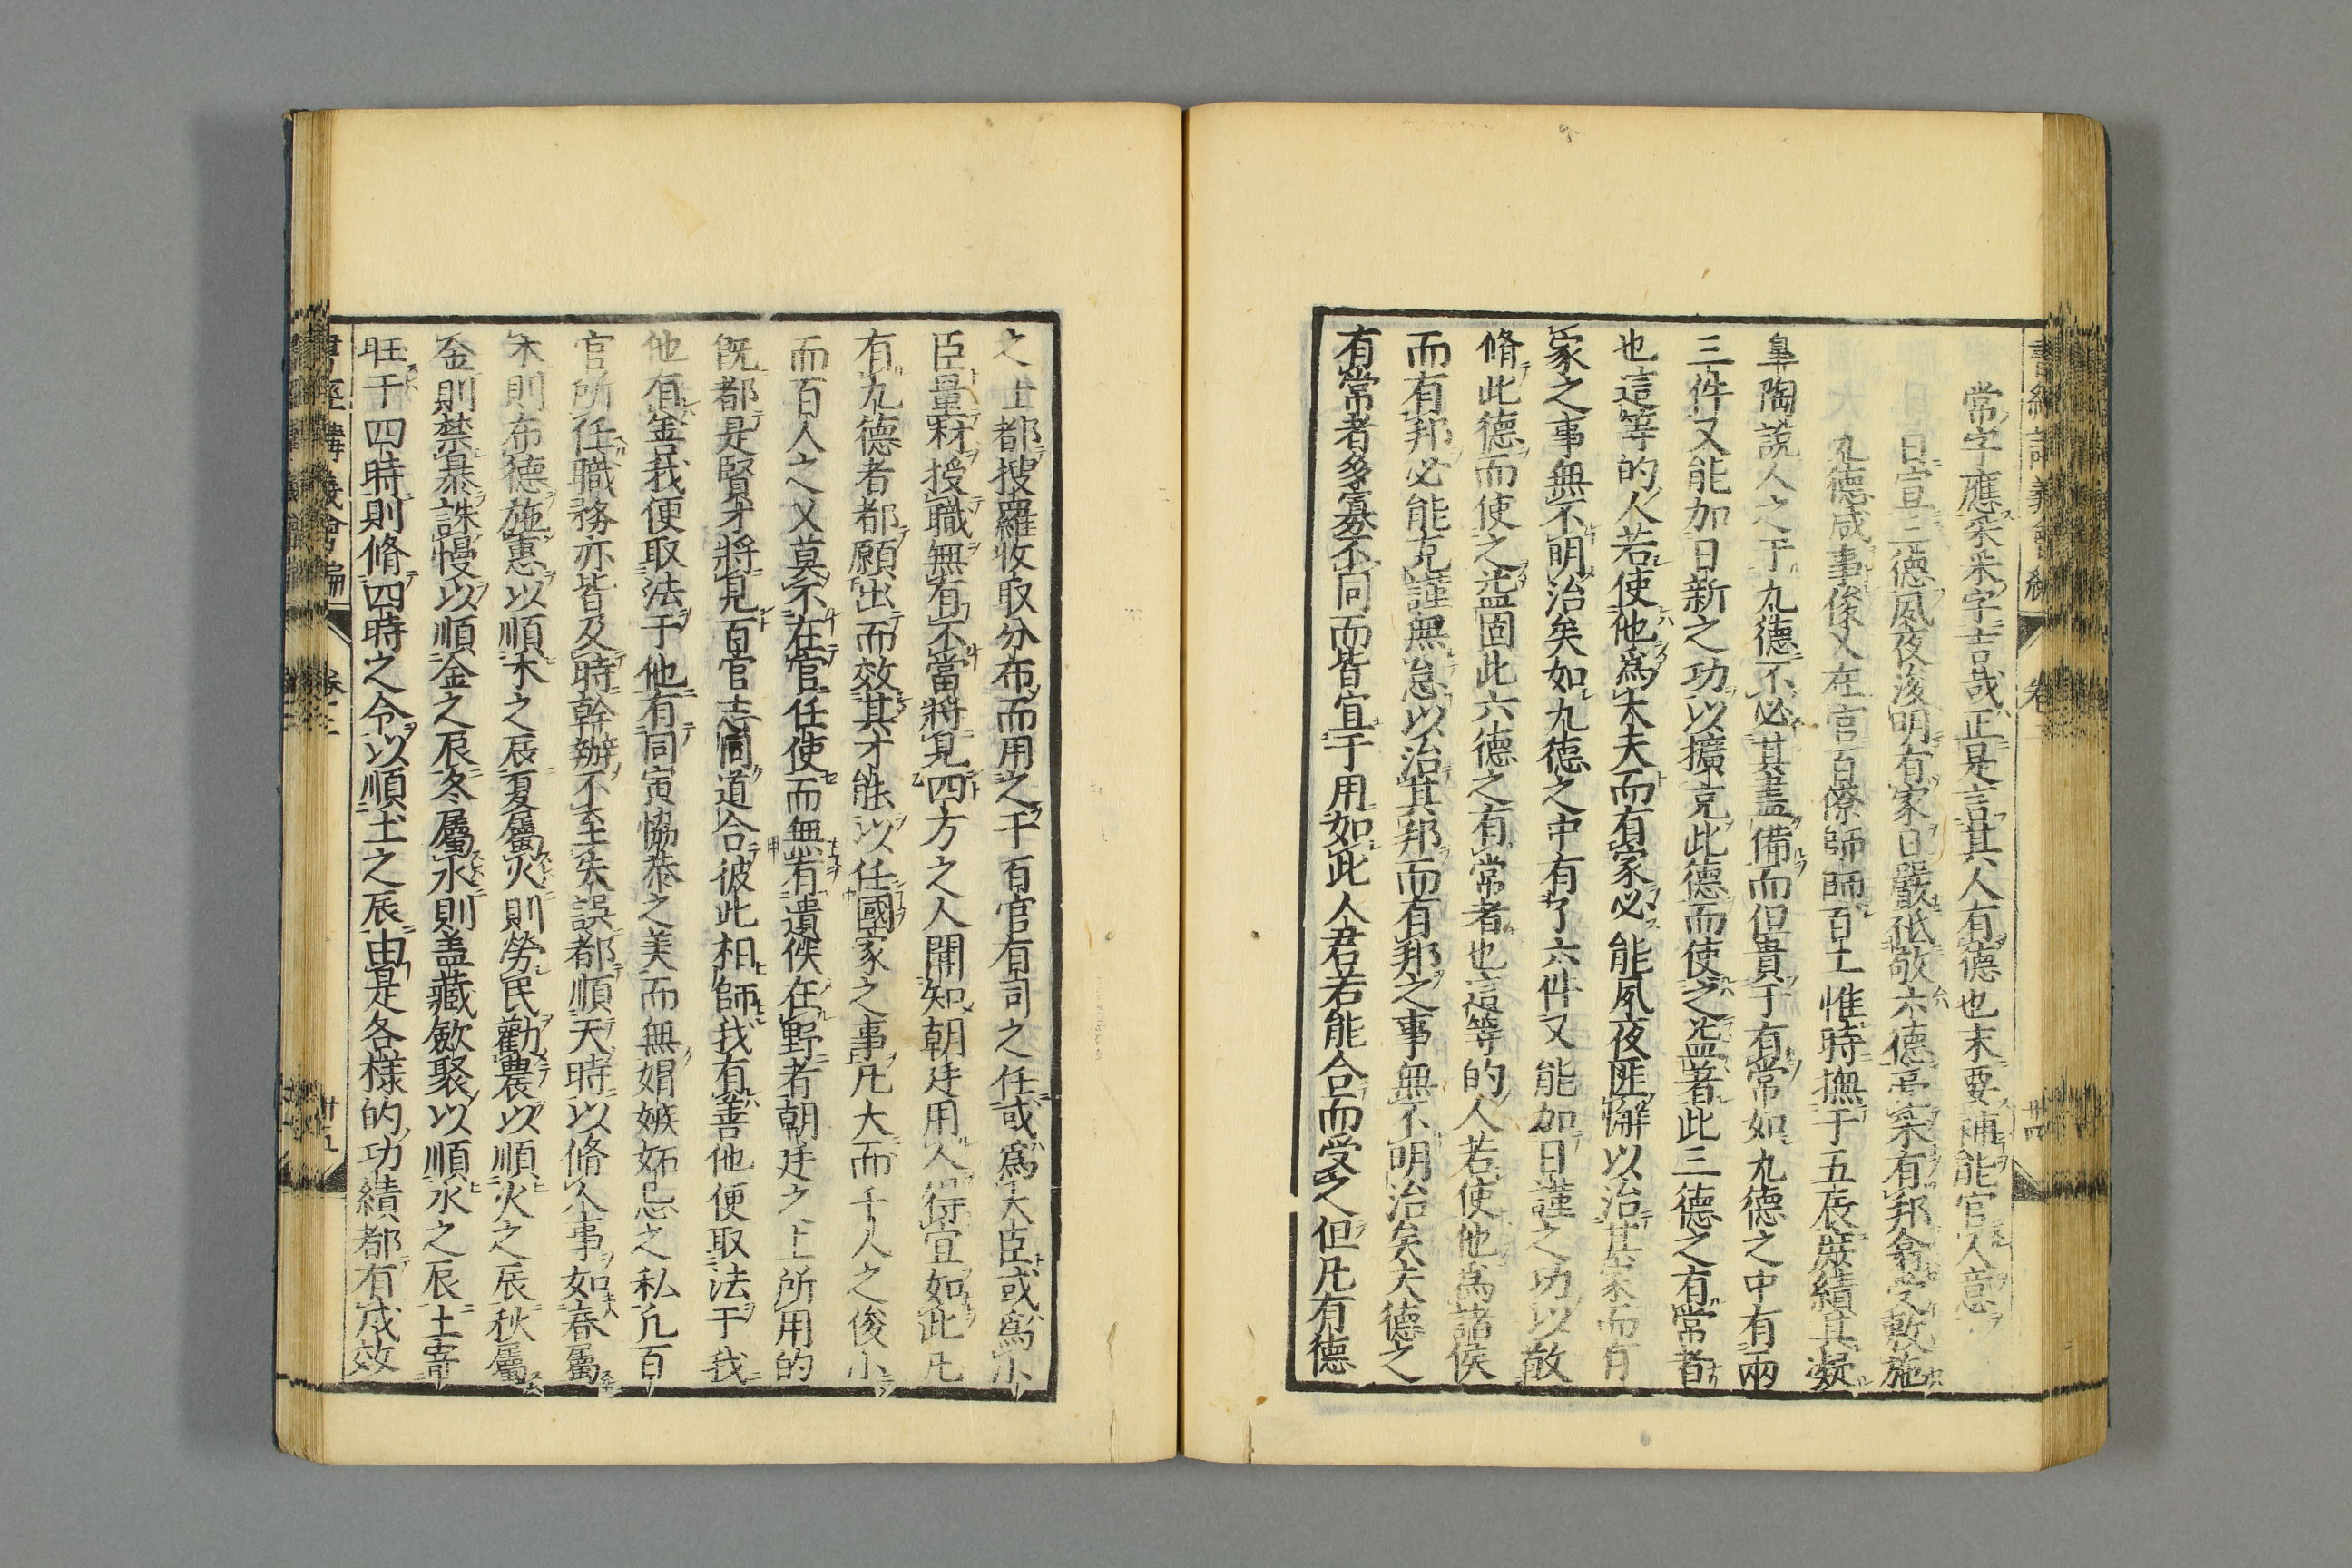 常字應采采字吉哉正是言其人有德也末要補能官人意
日宣三德夙夜浚明有家日嚴祗敬六德亮采有邦翕受敷施
九德咸事俊乂在官百僚師師百工惟時撫于五辰庶績其凝
臯陶說人之于九德不必其盡備而但貴于有常如九德之中有兩
三件又能加日新之功以擴充此德而使之益著此三德之有常者
也這等的人若使他爲大夫而有家必能夙夜匪懈以治其家而有
家之事無不明治矣如九德之中有了六件又能加日謹之功以敬
脩此德而使之益固此六德之有常者也這等的人若使他爲諸侯
而有邦必能克謹無怠以治其邦而有邦之事無不明治矣夫德之
有常者多寡不同而皆宜于用如此人君若能合而受之但凡有德
之士都搜羅收取分布而用之于百官有司之任或爲大臣或爲小
臣量材授職無有不當將見四方之人聞知朝廷用人得宜如此凡
有九德者都願出而效其才能以任國家之事凡大而千人之俊小
而百人之乂莫不在官任使而無有遺佚在野者朝廷之上所用的
既都是賢才將見百官志同道合彼此相師我有善他便取法于我
他有善我便取法于他有同寅協恭之美而無娼嫉妬忌之私凡百
官所任職務亦皆及時幹辦不至失誤都順天時以脩人事如春屬
木則布德施惠以順木之辰夏屬火則勞民勸農以順火之辰秋屬
金則禁暴誅慢以順金之辰冬屬水則盖藏歛聚以順水之辰土寄
旺于四時則脩四時之令以順土之辰由是各樣的功績都有成效
書經講義會編
卷二
廿五